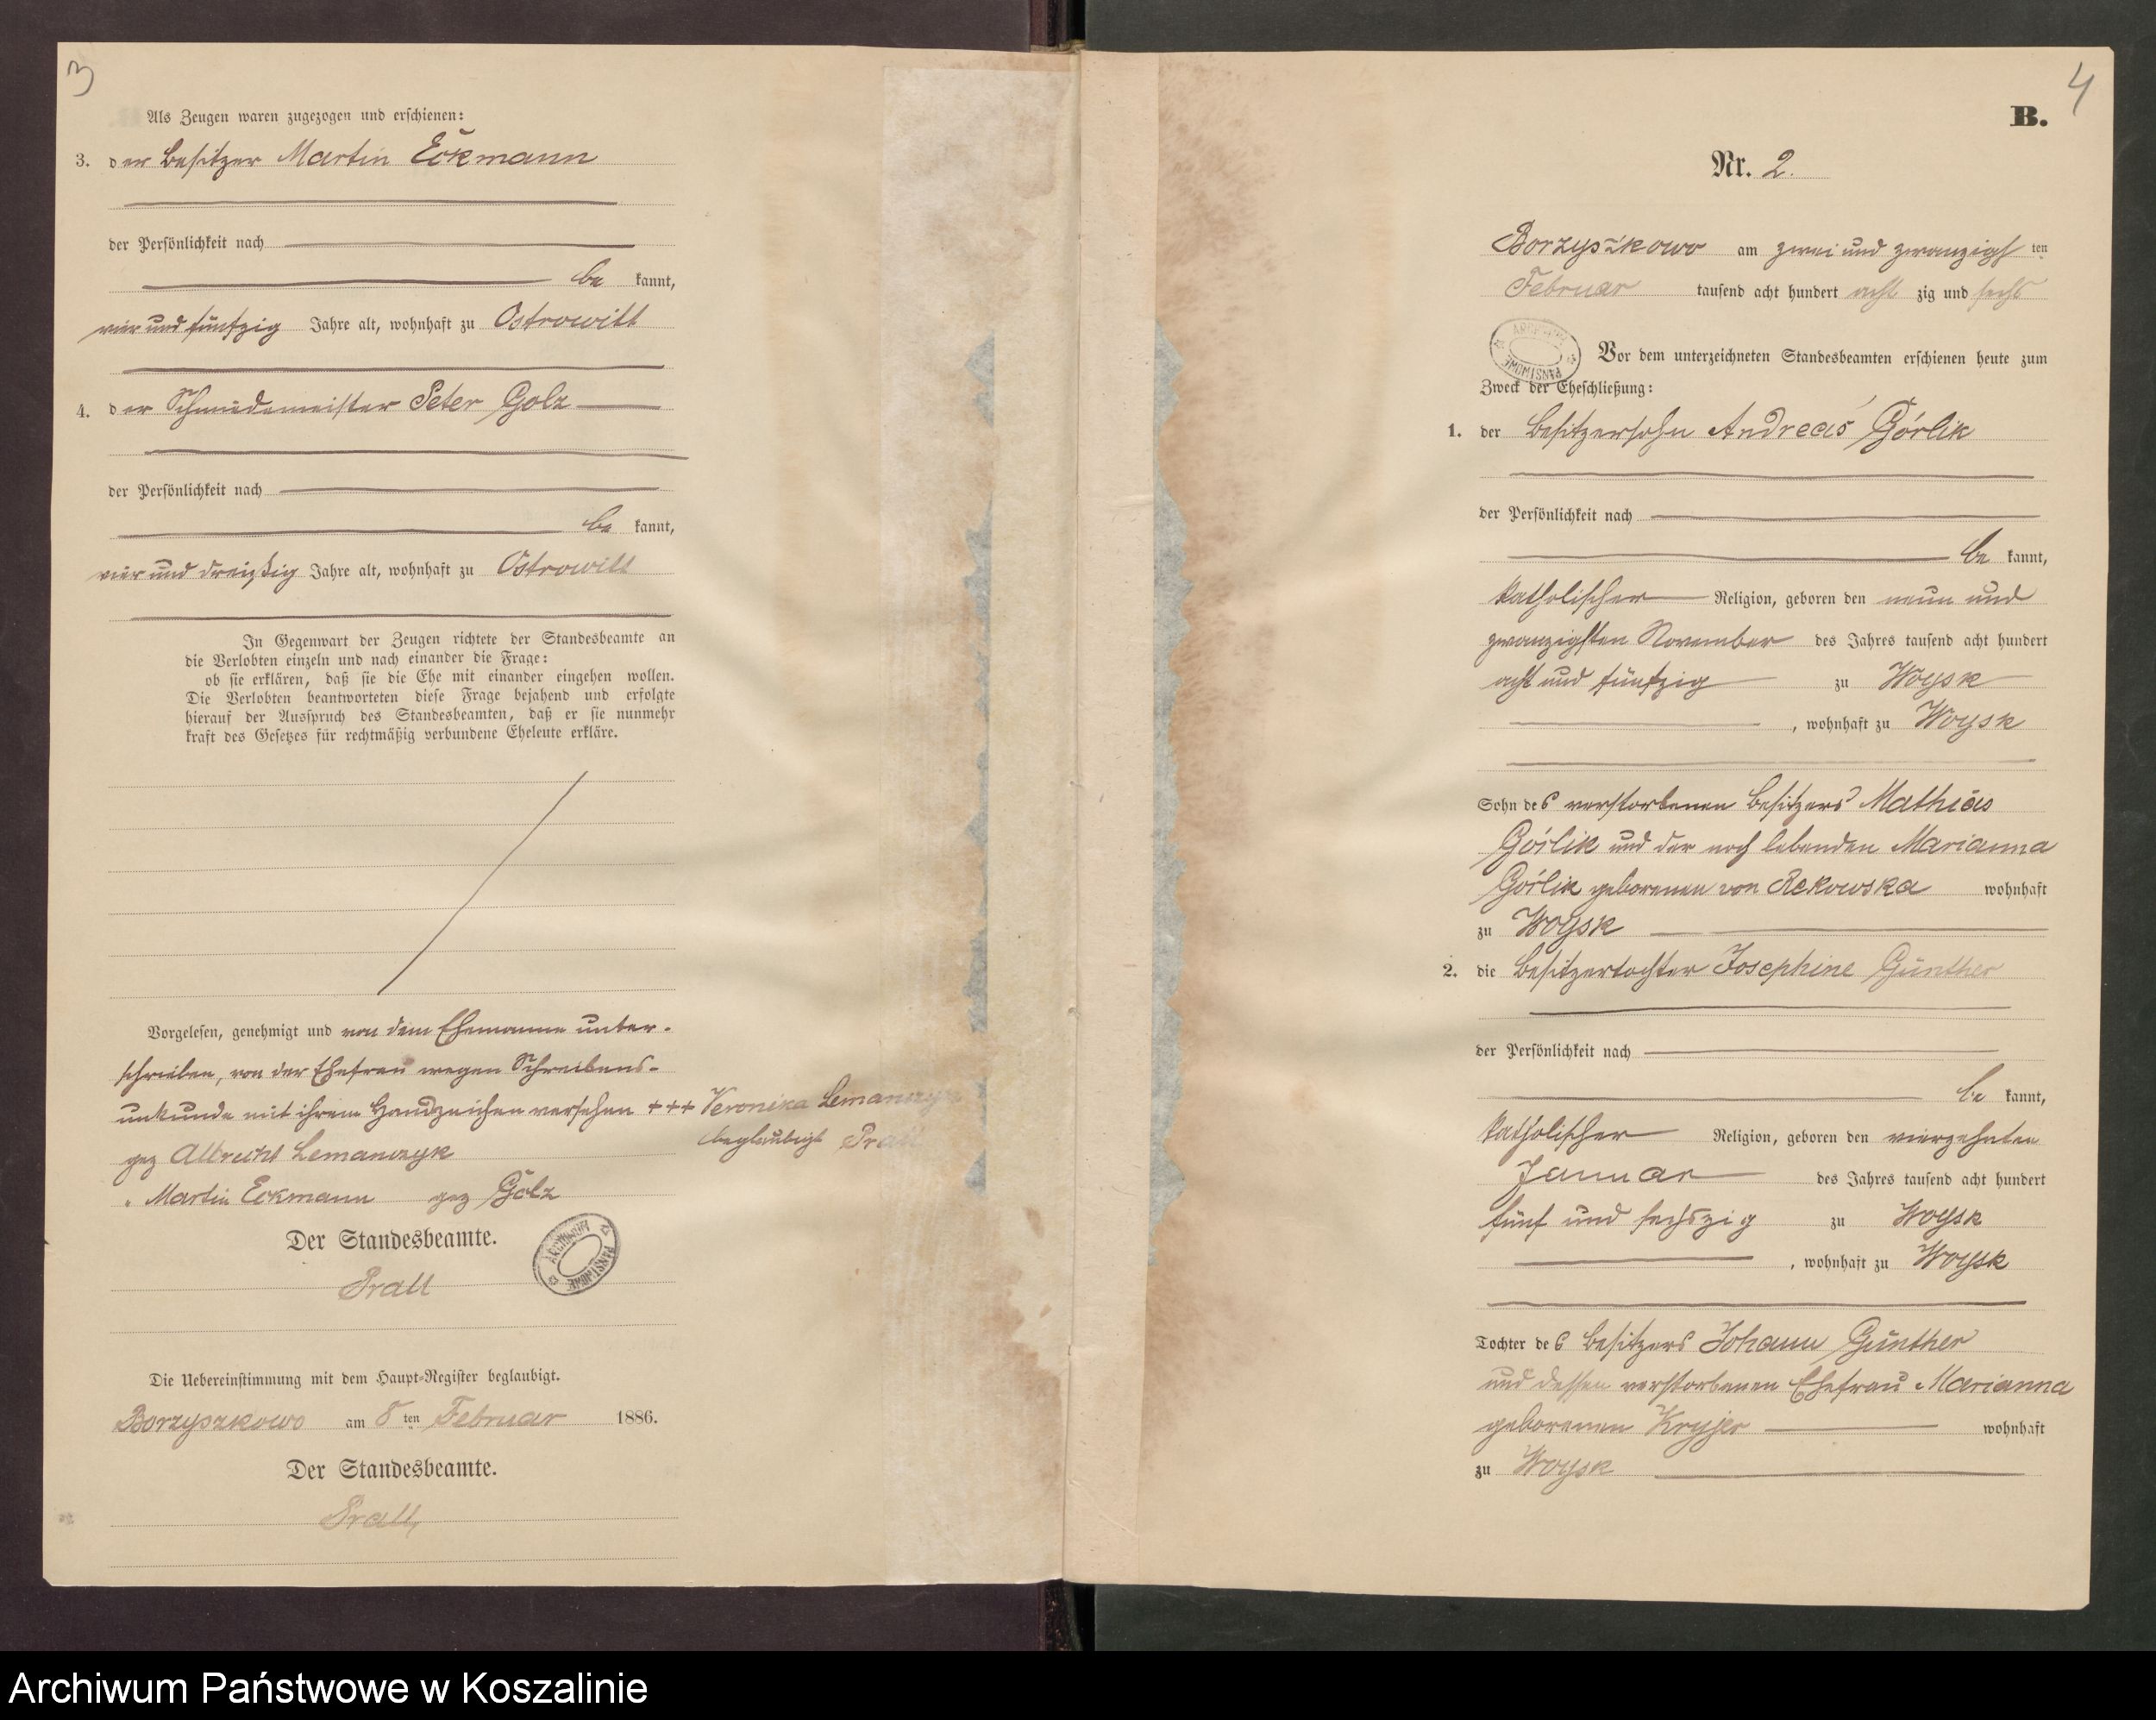 3
Als Zeugen waren zugezogen und erschienen:
3. der Besitzer Martin Eckmann
der Persönlichkeit nach
be kannt,
vier und fünfzig Jahre alt, wohnhaft zu Ostrowitt
4. der Schmiedemeister Peter Golz
der Persönlichkeit nach
be kannt,
vier und dreißig Jahre alt, wohnhaft zu Ostrowitt
In Gegenwart der Zeugen richtete der Standesbeamte an
die Verlobten einzeln und nach einander die Frage:
ob sie erklären, daß sie die Ehe mit einander eingehen wollen.
Die Verlobten beantworteten diese Frage bejahend und erfolgte
hierauf der Ausspruch des Standesbeamten, daß er sie nunmehr
kraft des Gesetzes für rechtmäßig verbundene Eheleute erkläre.
Vorgelesen, genehmigt und von dem Ehemanne unter-
schrieben, von der Ehefrau wegen Schreibens-
unkunde mit ihrem Handzeichen versehen +++ Veronika Lemanczyk
beglaubigt Prall
gez Albrecht Lemanczyk
" Martin Eckmann gez Golz
Der Standesbeamte.
Prall
ARCHIWUM PAŃSTWOWE
Die Uebereinstimmung mit dem Haupt-Register beglaubigt.
Borzyszkowo am 8 ten Februar 1886.
Der Standesbeamte.
Prall
4
B.
Nr. 2.
Borzyszkowo am zwei und zwanzigsten
Februar tausend acht hundert acht zig und sechs
ARCHIWUM PAŃSTWOWE
Vor dem unterzeichneten Standesbeamten erschienen heute zum
Zweck der Eheschließung:
1. der Besitzersohn Andreas Górlik
der Persönlichkeit nach
be kannt,
katholischer Religion, geboren den neun und
zwanzigsten November des Jahres tausend acht hundert
acht und fünfzig zu Woysk
, wohnhaft zu Woysk
Sohn des verstorbenen Besitzers Mathias
Górlik und der noch lebenden Marianna
Górlik geborenen von Rekowska wohnhaft
zu Woysk
2. die Besitzertochter Josephine Günther
der Persönlichkeit nach
be kannt,
katholischer Religion, geboren den vierzehnten
Januar des Jahres tausend acht hundert
fünf und sechszig zu Woysk
, wohnhaft zu Woysk
Tochter des Besitzers Johann Günther
und dessen verstorbenen Ehefrau Marianna
geborenen Kryjer wohnhaft
zu Woysk
Archiwum Państwowe w Koszalinie